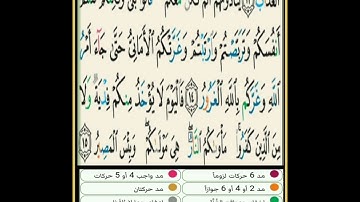 ٱلۡعَذَابُ ١٣ يُنَادُونَهُمۡ أَلَمۡ نَكُن مَّعَكُمۡۖ قَالُواْ بَلَىٰ وَلَٰكِنَّكُمۡ فَتَنتُمۡ
أَنفُسَكُمۡ وَتَرَبَّصۡتُمۡ وَٱرۡتَبۡتُمۡ وَغَرَّتۡكُمُ ٱلۡأَمَانِيُّ حَتَّىٰ جَآءَ أَمۡرُ
ٱللَّهِ وَغَرَّكُم بِٱللَّهِ ٱلۡغَرُورُ ١٤ فَٱلۡيَوۡمَ لَا يُؤۡخَذُ مِنكُمۡ فِدۡيَةٞ وَلَا
مِنَ ٱلَّذِينَ كَفَرُواْۚ مَأۡوَىٰكُمُ ٱلنَّارُۖ هِيَ مَوۡلَىٰكُمۡۖ وَبِئۡسَ ٱلۡمَصِيرُ ١٥
مد 6 حركات لزوماً مد واجب 4 أو 5 حركات
مد 2 أو 4 أو 6 جوازاً مد حركتان